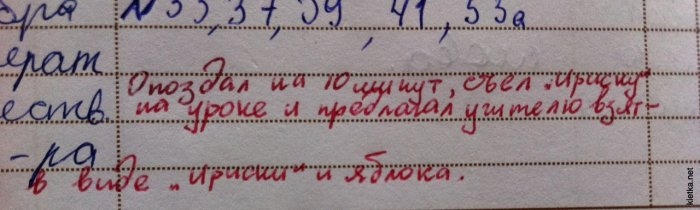 бра №35, 37, 39, 41, 53а
ерат
Опоздал на 10 минут, съел „Ириску"
еств. на уроке и предлагал учителю взят-
-ра
в виде „Ириски" и яблока.
kletka.net